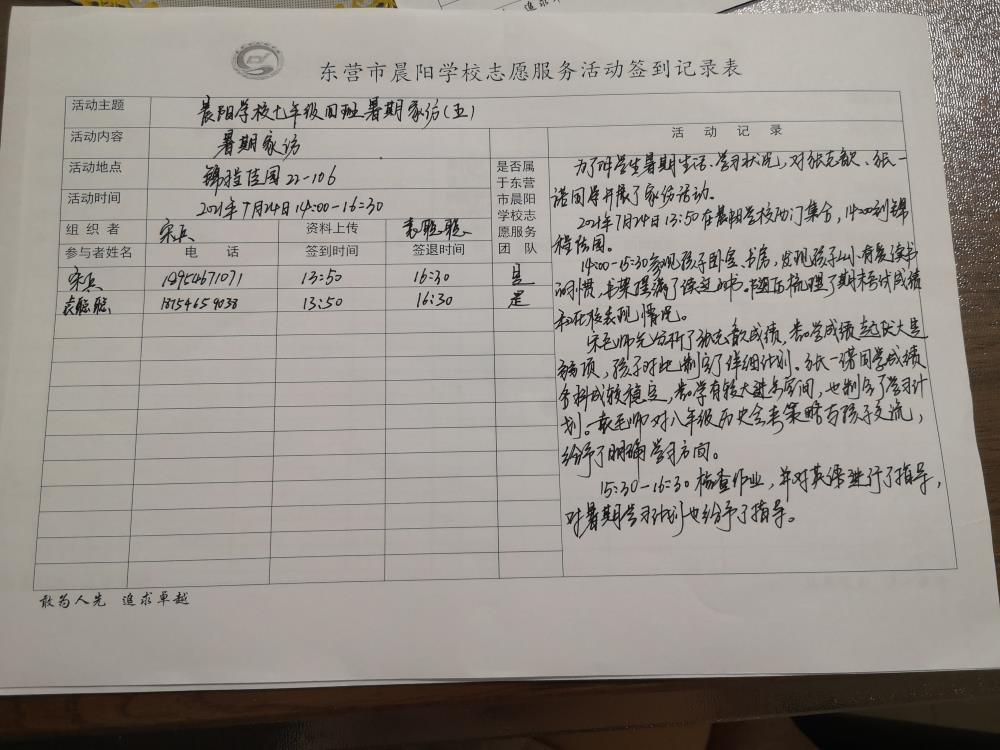 追求卓
东营市晨阳学校志愿服务活动签到记录表
活动主题 晨阳学校七年级四班暑期家访(五)
活动内容 暑期家访
活动地点 锦程佳园22-106
活动时间 2021年7月24日14:00-16:30
组织者 宋兵 资料上传 袁聪聪
是否属于东营市晨阳学校志愿服务团队
参与者姓名 电话 签到时间 签退时间
宋兵 13:50 16:30 是
袁聪聪 13:50 16:30 是
活动记录
为了解学生暑期生活、学习状况,对张克歆、张一
诺同学开展了家访活动。
2021年7月24日13:50在晨阳学校西门集合,14:00到锦
程佳园。
14:00-15:30参观孩子卧室、书房,发现孩子从小有爱读书
的习惯,书架摆满了读过的书。梳理了期末考试成绩
和在校表现情况。
宋老师先分析了张克歆成绩,数学成绩起伏大是
弱项,孩子对此制定了详细计划。张一诺同学成绩
各科成较稳定,数学有较大进步空间,也制定了学习计
划。袁老师对八年级历史会考策略与孩子交流,
给予了明确学习方向。
15:30-16:30检查作业,并对英语进行了指导,
对暑期学习计划也给予了指导。
敢为人先 追求卓越